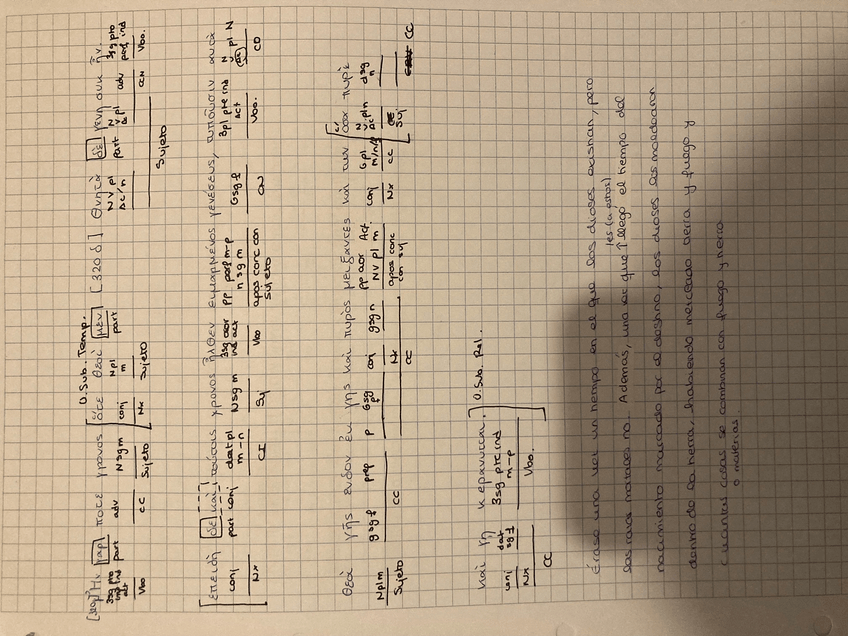 O. Sub. Temp.
Ἦν γάρ ποτε χρόνος [ὅτε θεοὶ μὲν [320 δ] θνητὰ δὲ γένη οὐκ ἦν.
3sg pto ind act part adv N sg m conj N pl m part N V pl Ac/n part N V pl Ac adv 3sg pto ind
Vbo CC Sujeto Nx Sujeto Sujeto CN Vbo.
[ἐπειδὴ δὲ καὶ τούτοις χρόνος ἦλθεν εἱμαρμένος γενέσεως, τυποῦσιν αὐτὰ
conj part conj dat pl m-n N sg m 3sg aor ind act pp perf m-p n sg m G sg f 3pl pte ind Act N V Ac pl N
Nx CI Suj Vbo apos conc con sujeto CN Vbo. CD
θεοὶ γῆς ἔνδον ἐκ γῆς καὶ πυρὸς μείξαντες καὶ τῶν [ὅσα πυρὶ
N pl m g sg f prep p G sg f conj g sg n pp aor Act NV pl m conj G pl m/n/f N V pl n Ac d sg n
Sujeto CC Nx CC apos conc con suj Nx CC Suj CC
καὶ γῇ κεράννυται.] O. Sub. Rel.
conj dat sg f 3sg pte ind m-p
Nx CC Vbo.
Érase una vez un tiempo en el que los dioses existían, pero
las razas mortales no. Además, una vez que ↑ llegó el tiempo del
les (a estos)
nacimiento marcado por el destino, los dioses las moldearon
dentro de la tierra, habiendo mezclado tierra y fuego y
cuantas cosas se combinan con fuego y tierra
o materias.